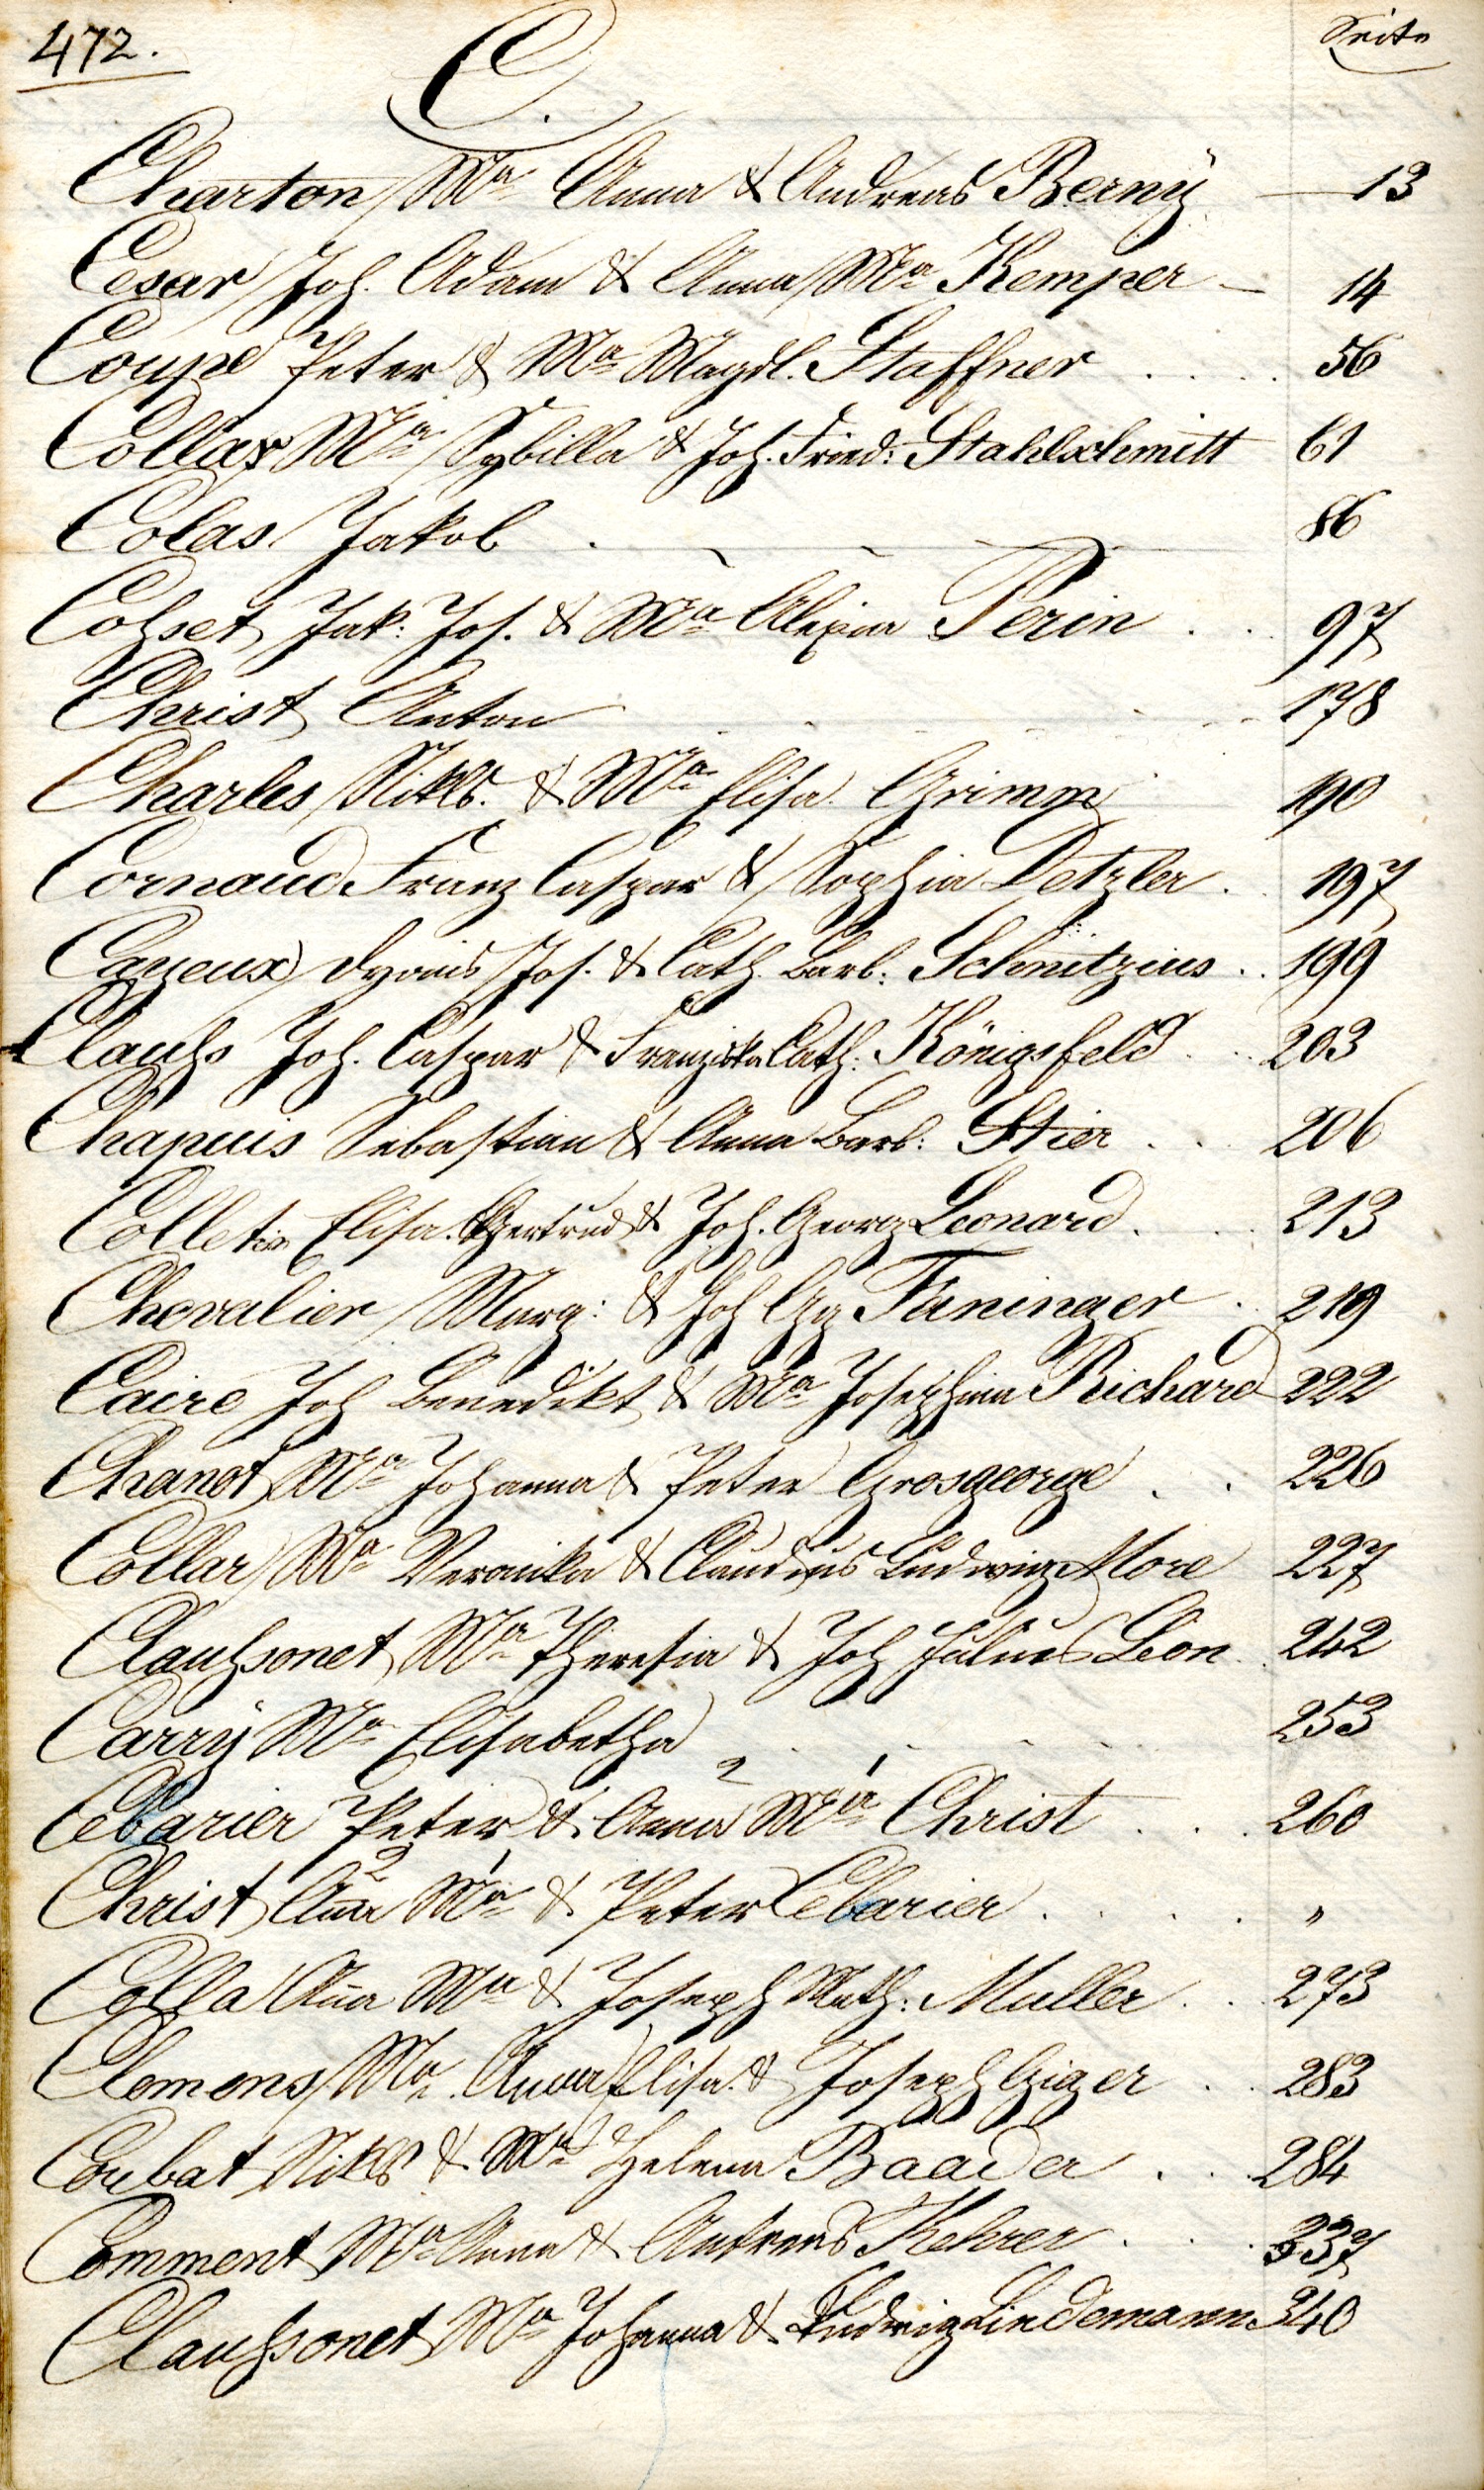 472.
C.
Seite
Charton Ma Anna & Andreas Bernÿ — 13
Cesar Joh. Adam & Anna Ma Kemper — 14
Coupe Peter & Ma Magdl. Staffner . . . . 56
Collar Ma Sybilla & Joh. Fried: Stahlschmitt 61
Colas Jakob . - - - 86
Colset Jak: Jos. & Ma Alexia Perin . . . 97
Christ Anton . - - - 178
Charles Nikls. & Ma Elisa. Grimm 190
Cornaud Franz Caspar & Sophia Detzler . . 197
Cayeux Dyonis Jos. & Cath. Barb. Schnitzius . . 199
Clauhs Joh. Caspar & Franziska Cath. Königsfeld . . . 203
Chapuis Sebastian & Anna Barb: Stier . . . 206
Collet Elisa. Gertrud & Joh. Georg Leonard . . . 213
Chevalier Marg: & Joh Gg Faninger . . 219
Caire Joh Benedikt & Ma Josephina Richard 222
Chanot Ma Johanna & Peter Grosgeorge . . 226
Collar Ma Veronika & Claudius Ludwig More 227
Clauhsonet Ma Theresia & Joh Julius Leon . 242
Carrÿ Ma Elisabetha . - - - 253
Cebarier Peter & Anna 2 Ma 1 Christ . . . 260
Christ Anna 2 Ma 1 & Peter Cebarier . . . . „
Colla Aña Ma & Joseph Math: Muller . . . 273
Clemens Ma. Anna Elisa. & Joseph Geiger . . 283
Coubat Nikls & Ma Helena Baader . . . 284
Comment Ma Anna & Andreas Kehrer . . . 337
Clauhsonet Ma Johanna & Ludwig Lindemann 340